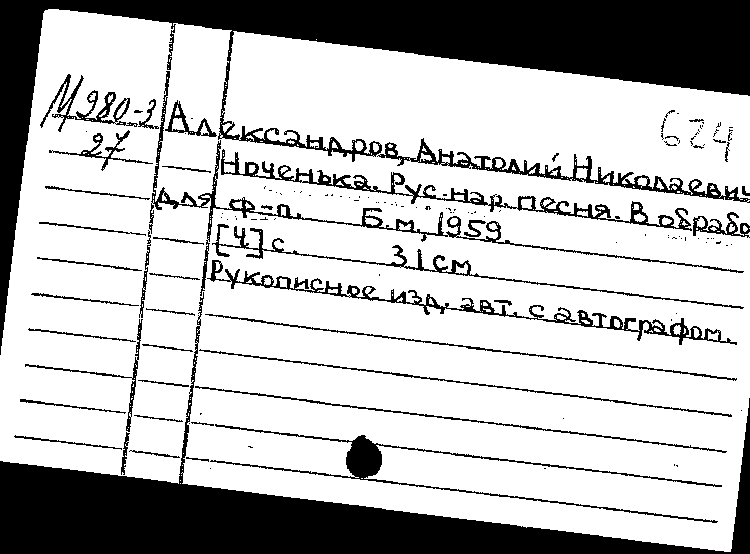 624
М980-3
27
Александров, Анатолий Николаевич
Ноченька. Рус. нар. песня. В обрабо
для ф-п. Б.м., 1959.
[4] с. 31 см.
Рукописное изд. авт. с автографом.